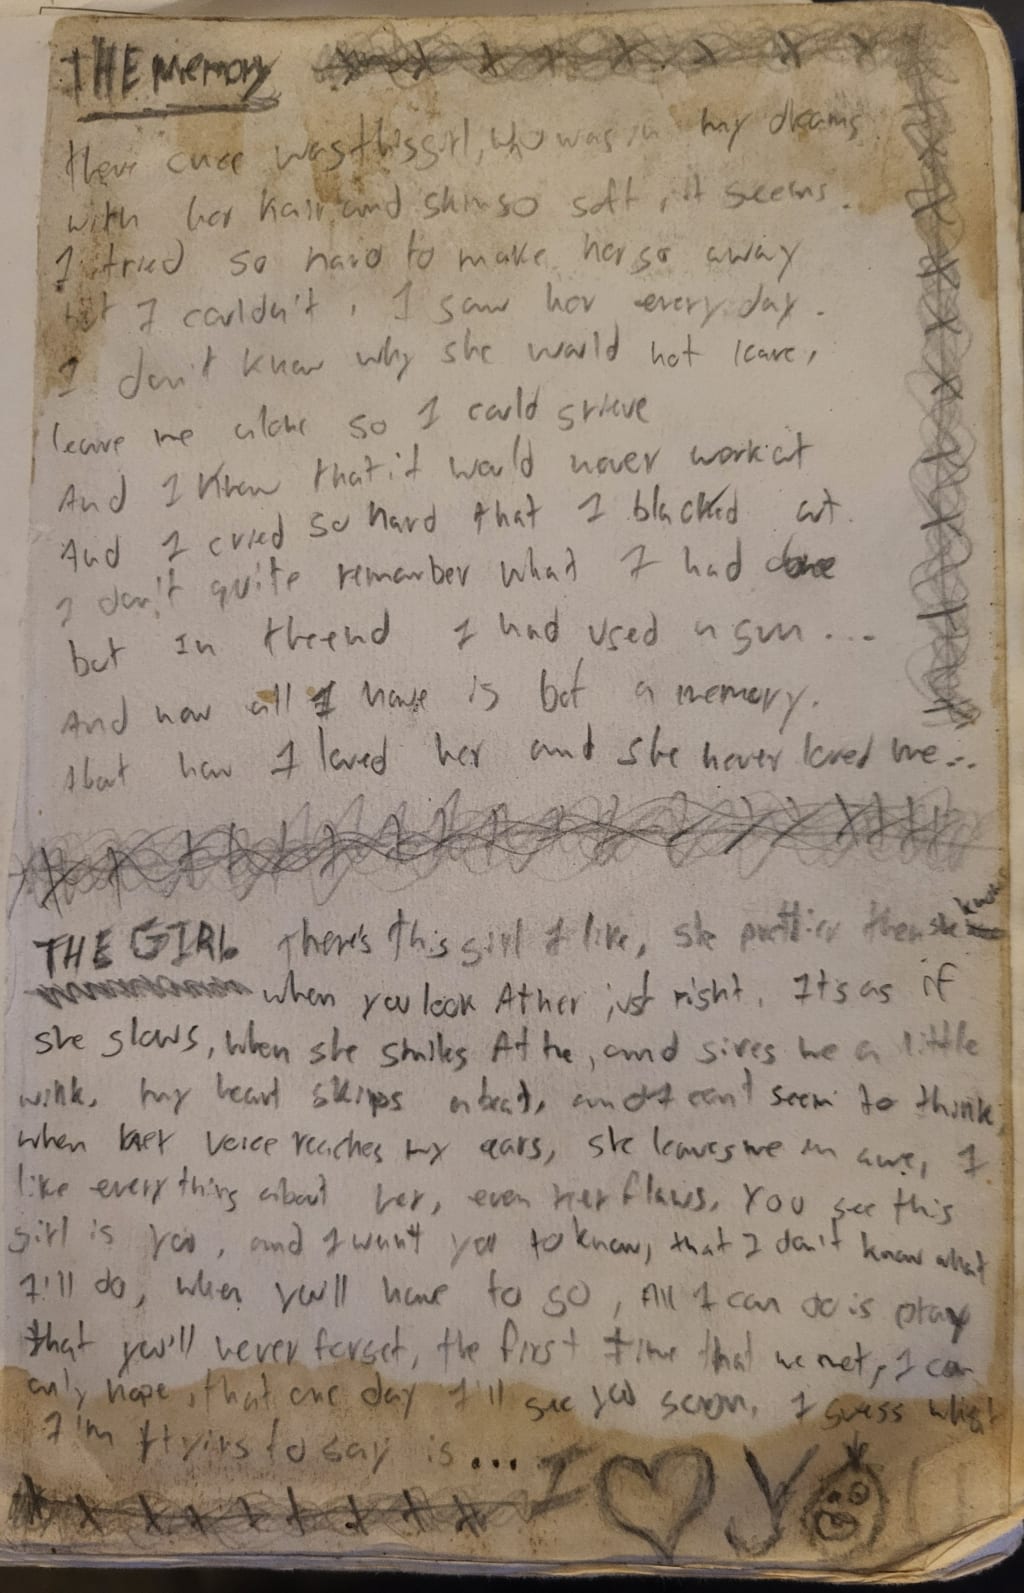 THE Memory
there once was this girl, who was in my dreams.
with her hair and skin so soft, it seems.
I tried so hard to make her go away
but I couldn't, I saw her every day.
I don't know why she would not leave,
leave me alone so I could grieve
And I know that it would never work out
And I cried so hard that I blacked out.
I don't quite remember what I had done
but In the end I had used a gun...
And now all I have is but a memory.
that how I loved her and she never loved me...
THE GIRL There's this girl I like, she prettier then she knows
when you look At her just right. Its as if
she glows, when she smiles At me, and gives me a little
wink. my heart skips a beat, and I can't seem to think,
when her voice reaches my ears, she leaves me in awe, I
like everything about her, even her flaws. You see this
girl is you, and I want you to know, that I don't know what
I'll do, when you'll have to go, All I can do is pray
that you'll never forget, the first time that we met, I can
only hope, that one day I'll see you soon. I guess what
I'm trying to say is... I ♥ y